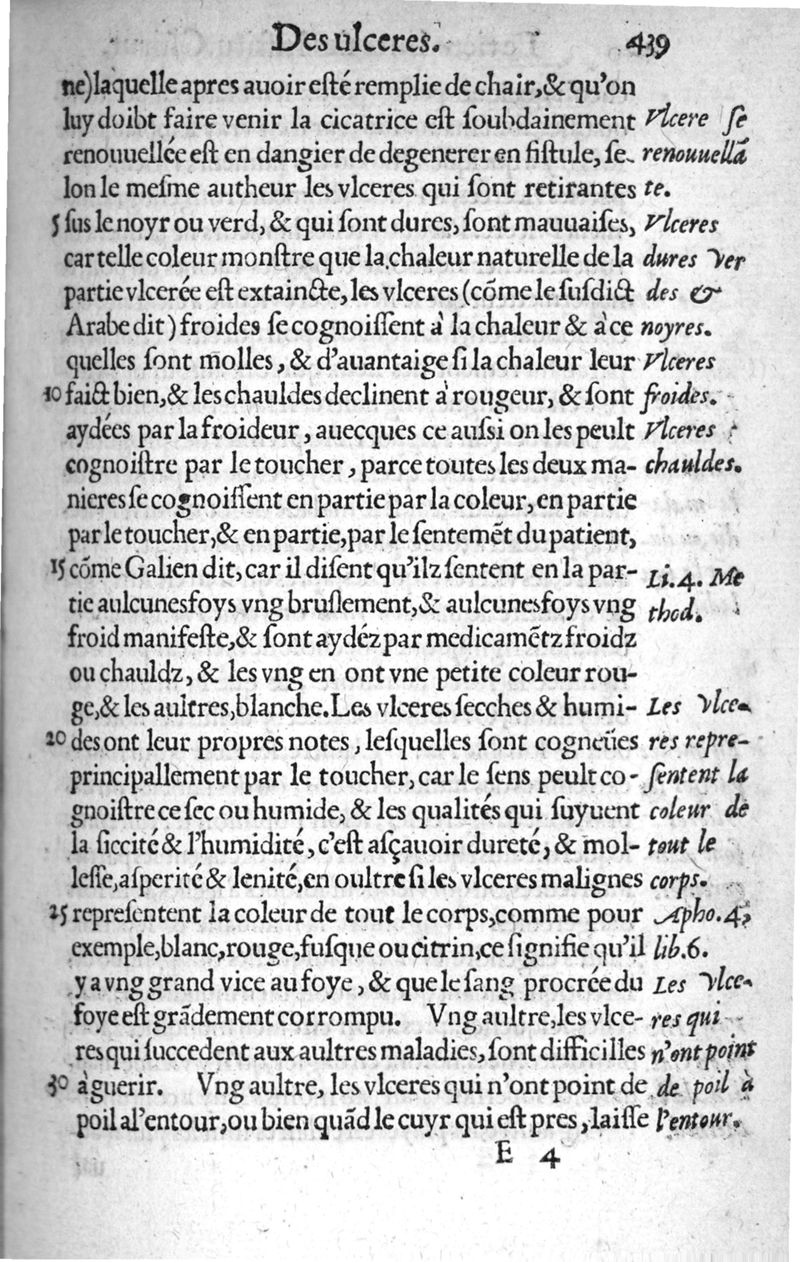 Des ulceres. 439
ne)laquelle apres auoir esté remplie de chair,& qu'on
luy doibt faire venir la cicatrice est soubdainement
renouuellée est en dangier de degenerer en fistule, se-
lon le mesme autheur les vlceres qui sont retirantes
5 sus le noyr ou verd, & qui sont dures, sont mauuaises,
car telle coleur monstre que la chaleur naturelle de la
partie vlcerée est extaincte, les vlceres (cõme le susdict
Arabe dit) froides se cognoissent à la chaleur & à ce
quelles sont molles, & d'auantaige si la chaleur leur
10 faict bien,& les chauldes declinent à rougeur, & sont
aydées par la froideur, auecques ce aussi on les peult
cognoistre par le toucher, parce toutes les deux ma-
nieres se cognoissent en partie par la coleur, en partie
par le toucher,& en partie,par le sentemẽt du patient,
15 cõme Galien dit, car il disent qu'ilz sentent en la par-
tie aulcunesfoys vng bruslement,& aulcunesfoys vng
froid manifeste,& sont aydéz par medicamẽtz froidz
ou chauldz, & les vng en ont vne petite coleur rou-
ge,& les aultres,blanche.Les vlceres secches & humi-
20 des ont leur propres notes, lesquelles sont cogneües
principallement par le toucher, car le sens peult co-
gnoistre ce sec ou humide, & les qualités qui suyuent
la siccité & l'humidité, c'est asçauoir dureté, & mol-
lesse,asperité & lenité,en oultre si les vlceres malignes
25 representent la coleur de tout le corps,comme pour
exemple,blanc,rouge,fusque ou citrin,ce signifie qu'il
y a vng grand vice au foye, & que le sang procrée du
foye est grãdement corrompu. Vng aultre,les vlce-
res qui succedent aux aultres maladies, sont difficilles
30 à guerir. Vng aultre, les vlceres qui n'ont point de
poil al'entour,ou bien quãd le cuyr qui est pres, laisse
E 4
Vlcere se
renouuellã
te.
Vlceres
dures ver
des &
noyres.
Vlceres
froides.
Vlceres
chauldes.
Li.4. Me
thod.
Les vlce-
res repre-
sentent la
coleur de
tout le
corps.
Apho.4.
lib.6.
Les vlce-
res qui
n'ont point
de poil à
l'entour.